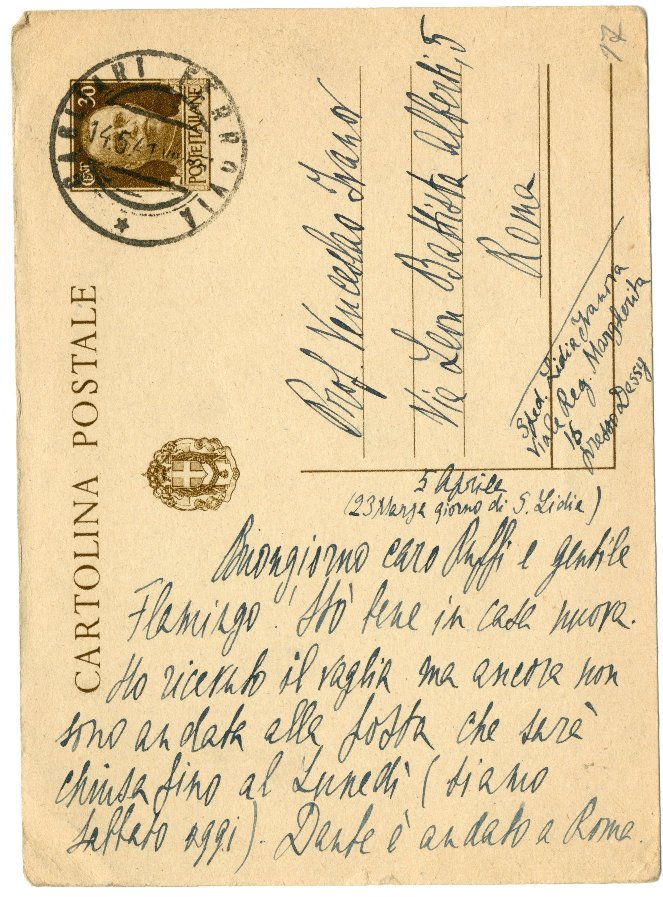 17
CAGLIARI FERROVIA
CENT 30
POSTE ITALIANE
CARTOLINA POSTALE
Prof. Venceslao Ivanov
Via Leon Battista Alberti, 5
Roma
Sped. Lidia Ivanova
Viale Reg. Margherita
16
presso Dessy
5 Aprile
(23 Marza giorno di S. Lidia)
Buongiorno caro Puffi e gentile
Flamingo! Stò bene in casa nuova.
Ho ricevuto il vaglia ma ancora non
sono andata alla posta che sarà
chiusa fino al Lunedì (siamo
sabbato oggi). Dante è andato a Roma